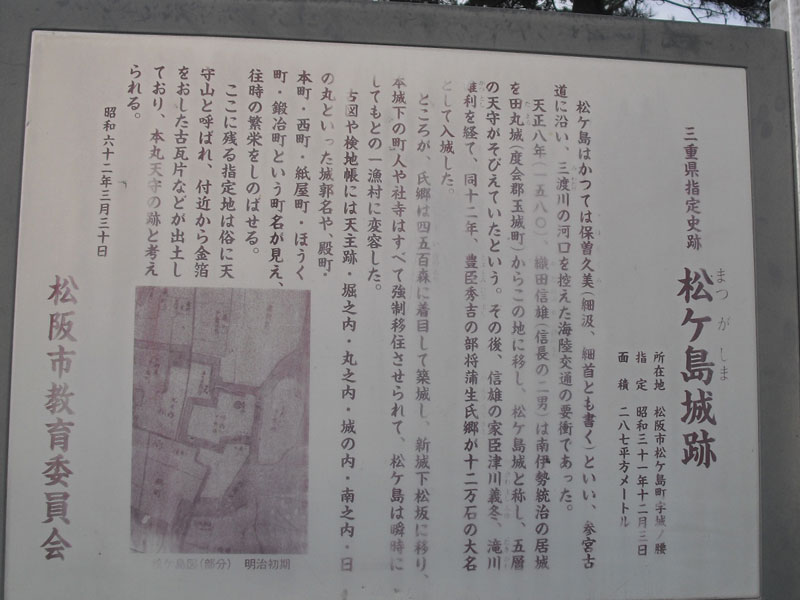 三重県指定史跡
松ケ島城跡
まつがしま
所在地 松阪市松ケ島町字城ノ腰
指定 昭和三十一年十二月三日
面積 二八七平方メートル
松ケ島はかつては保曽久美(細汲、細首とも書く)といい、参宮古
道に沿い、三渡川の河口を控えた海陸交通の要衝であった。
天正八年(一五八〇)、織田信雄(信長の二男)は南伊勢統治の居城
を田丸城(度会郡玉城町)からこの地に移し、松ケ島城と称し、五層
の天守がそびえていたという。その後、信雄の家臣津川義冬、滝川
雄利を経て、同十二年、豊臣秀吉の部将蒲生氏郷が十二万石の大名
として入城した。
ところが、氏郷は四五百森に着目して築城し、新城下松坂に移り、
本城下の町人や社寺はすべて強制移住させられて、松ケ島は瞬時に
してもとの一漁村に変容した。
古図や検地帳には天主跡・堀之内・丸之内・城の内・南之内・日
の丸といった城郭名や、殿町・
本町・西町・紙屋町・ほうく
町・鍛冶町という町名が見え、
往時の繁栄をしのばせる。
ここに残る指定地は俗に天
守山と呼ばれ、付近から金箔
をおした古瓦片などが出土し
ており、本丸天守の跡と考え
られる。
昭和六十二年三月三十日
松阪市教育委員会
松ケ島図(部分) 明治初期